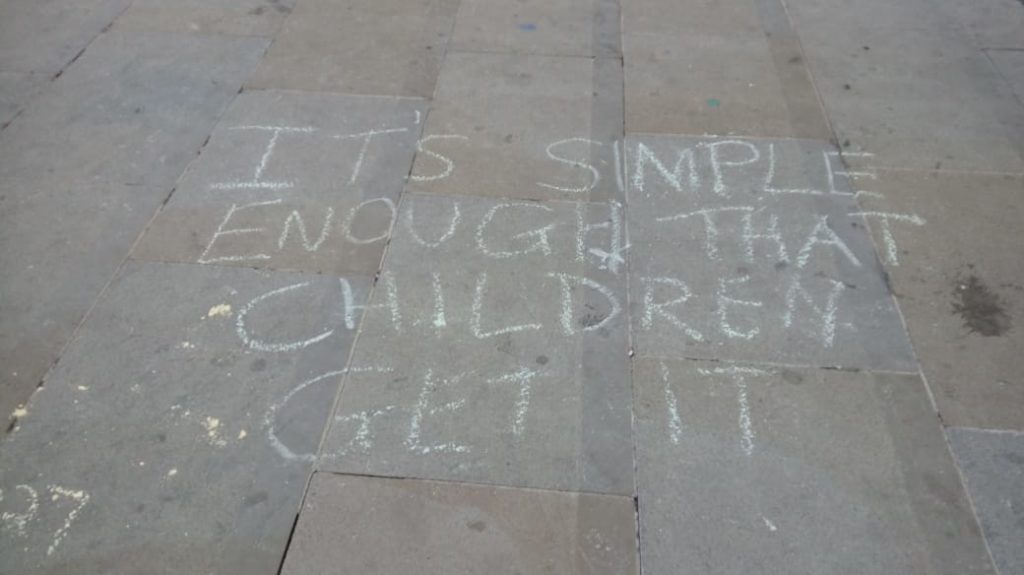 IT'S SIMPLE
ENOUGH THAT
CHILDREN
GET IT